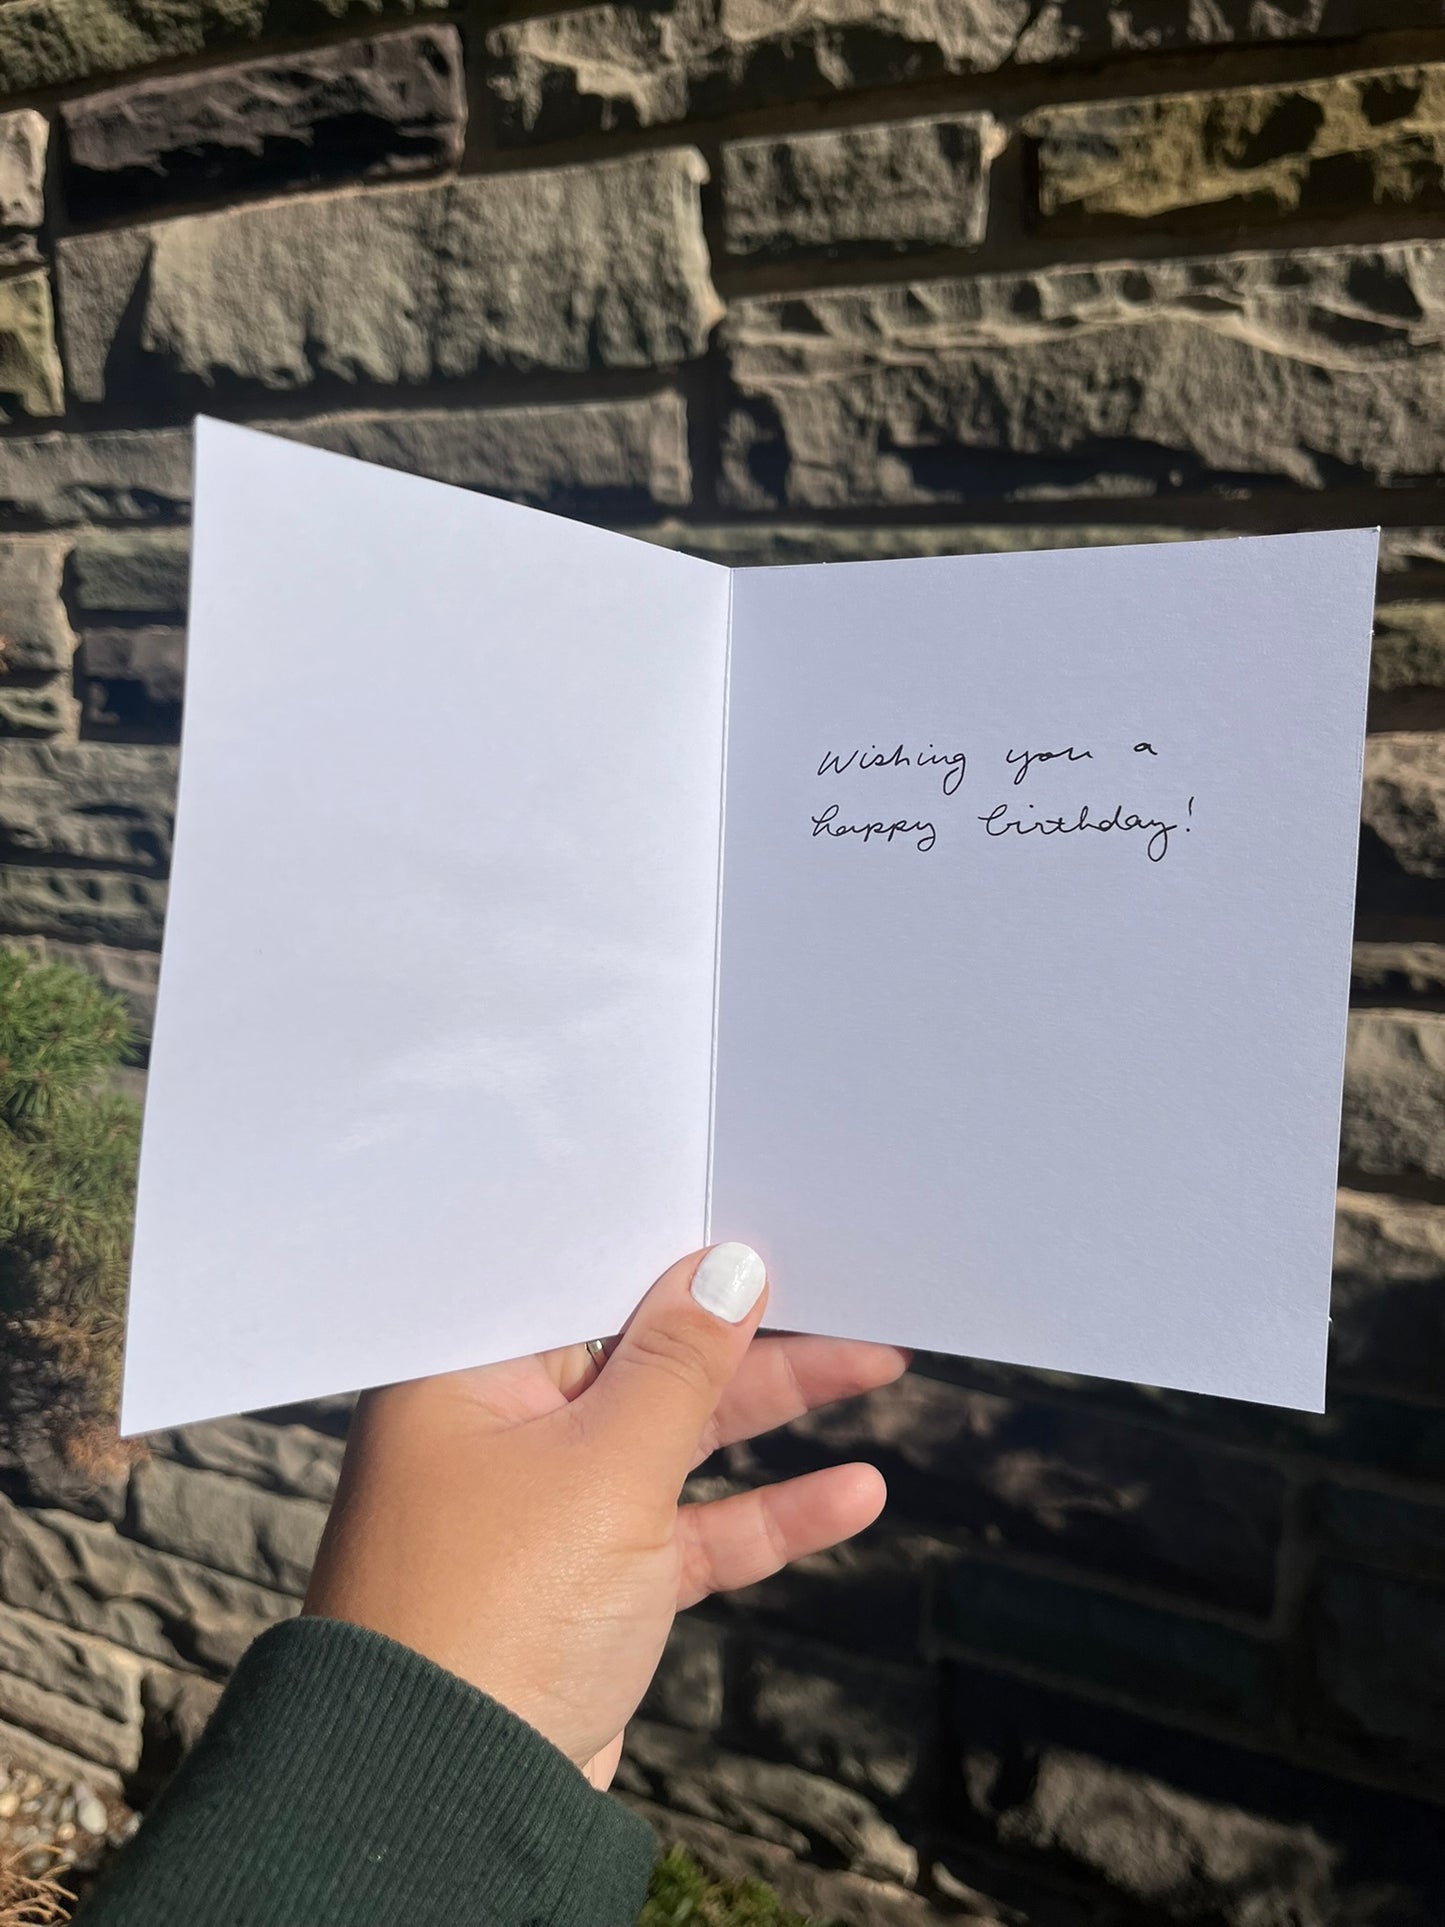 Wishing you a
happy birthday!